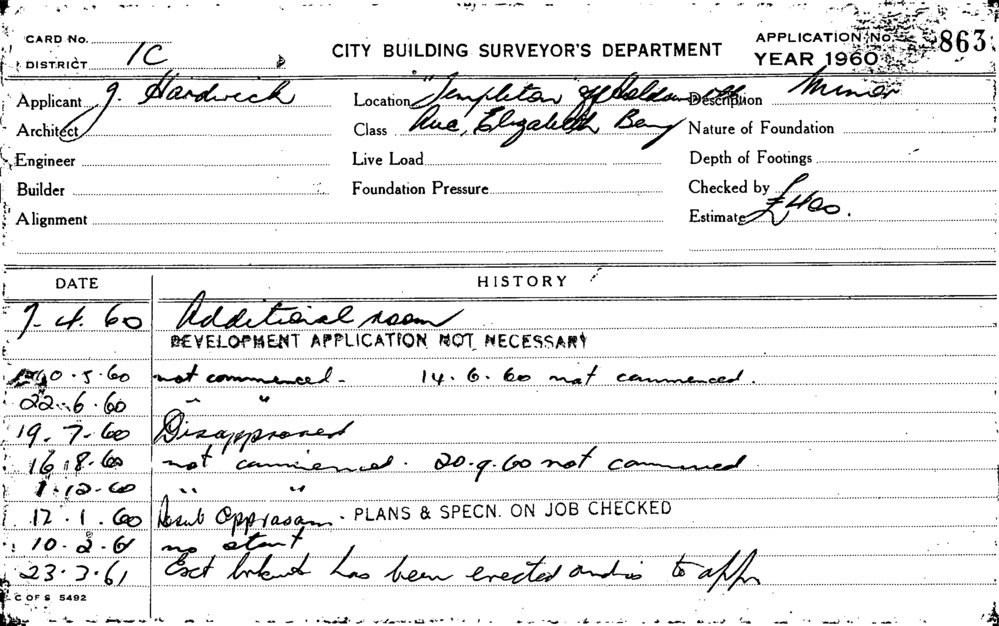 CARD No.
DISTRICT 1C
CITY BUILDING SURVEYOR'S DEPARTMENT
APPLICATION No. 863
YEAR 1960
Applicant J. Hardwick
Location "Templeton" off
Description Minor
Architect
Class Ave, Elizabeth Bay
Nature of Foundation
Engineer
Live Load
Depth of Footings
Builder
Foundation Pressure
Checked by
Alignment
Estimate £400.
DATE HISTORY
7. 4. 60 Additional room
DEVELOPMENT APPLICATION NOT NECESSARY
10.5.60 not commenced - 14.6.60 not commenced.
22.6.60 " "
19.7.60 Disapproved
16.8.60 not commenced. 20.9.60 not commenced
1.12.60 " "
12.1.60 - PLANS & SPECN. ON JOB CHECKED
10.2.61 no start
23.3.61 Ext has been erected and is to
C OF S 5492